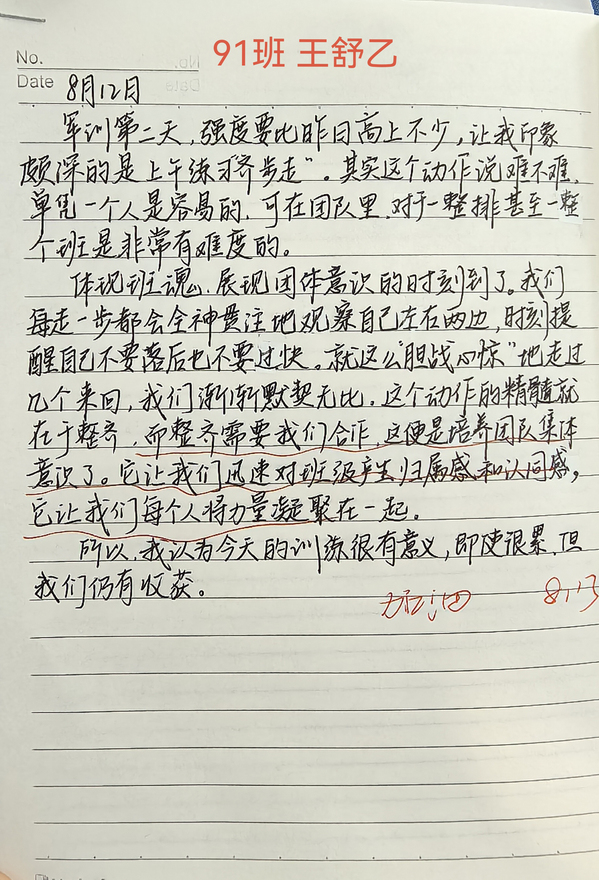 91班 王舒乙
No.
Date 8月12日
军训第二天，强度要比昨日高上不少，让我印象
颇深的是上午练习“齐步走”。其实这个动作说难不难，
单凭一个人是容易的，可在团队里，对于一整排甚至一整
个班是非常有难度的。
体现班魂、展现团体意识的时刻到了。我们
每走一步都会全神贯注地观察自己左右两边，时刻提
醒自己不要落后也不要过快。就这么“胆战心惊”地走过
几个来回，我们渐渐默契无比。这个动作的精髓就
在于整齐，而整齐需要我们合作，这便是培养团队集体
意识了。它让我们迅速对班级产生归属感和认同感，
它让我们每个人将力量凝聚在一起。
所以，我认为今天的训练很有意义，即使很累，但
我们仍有收获。
8.13